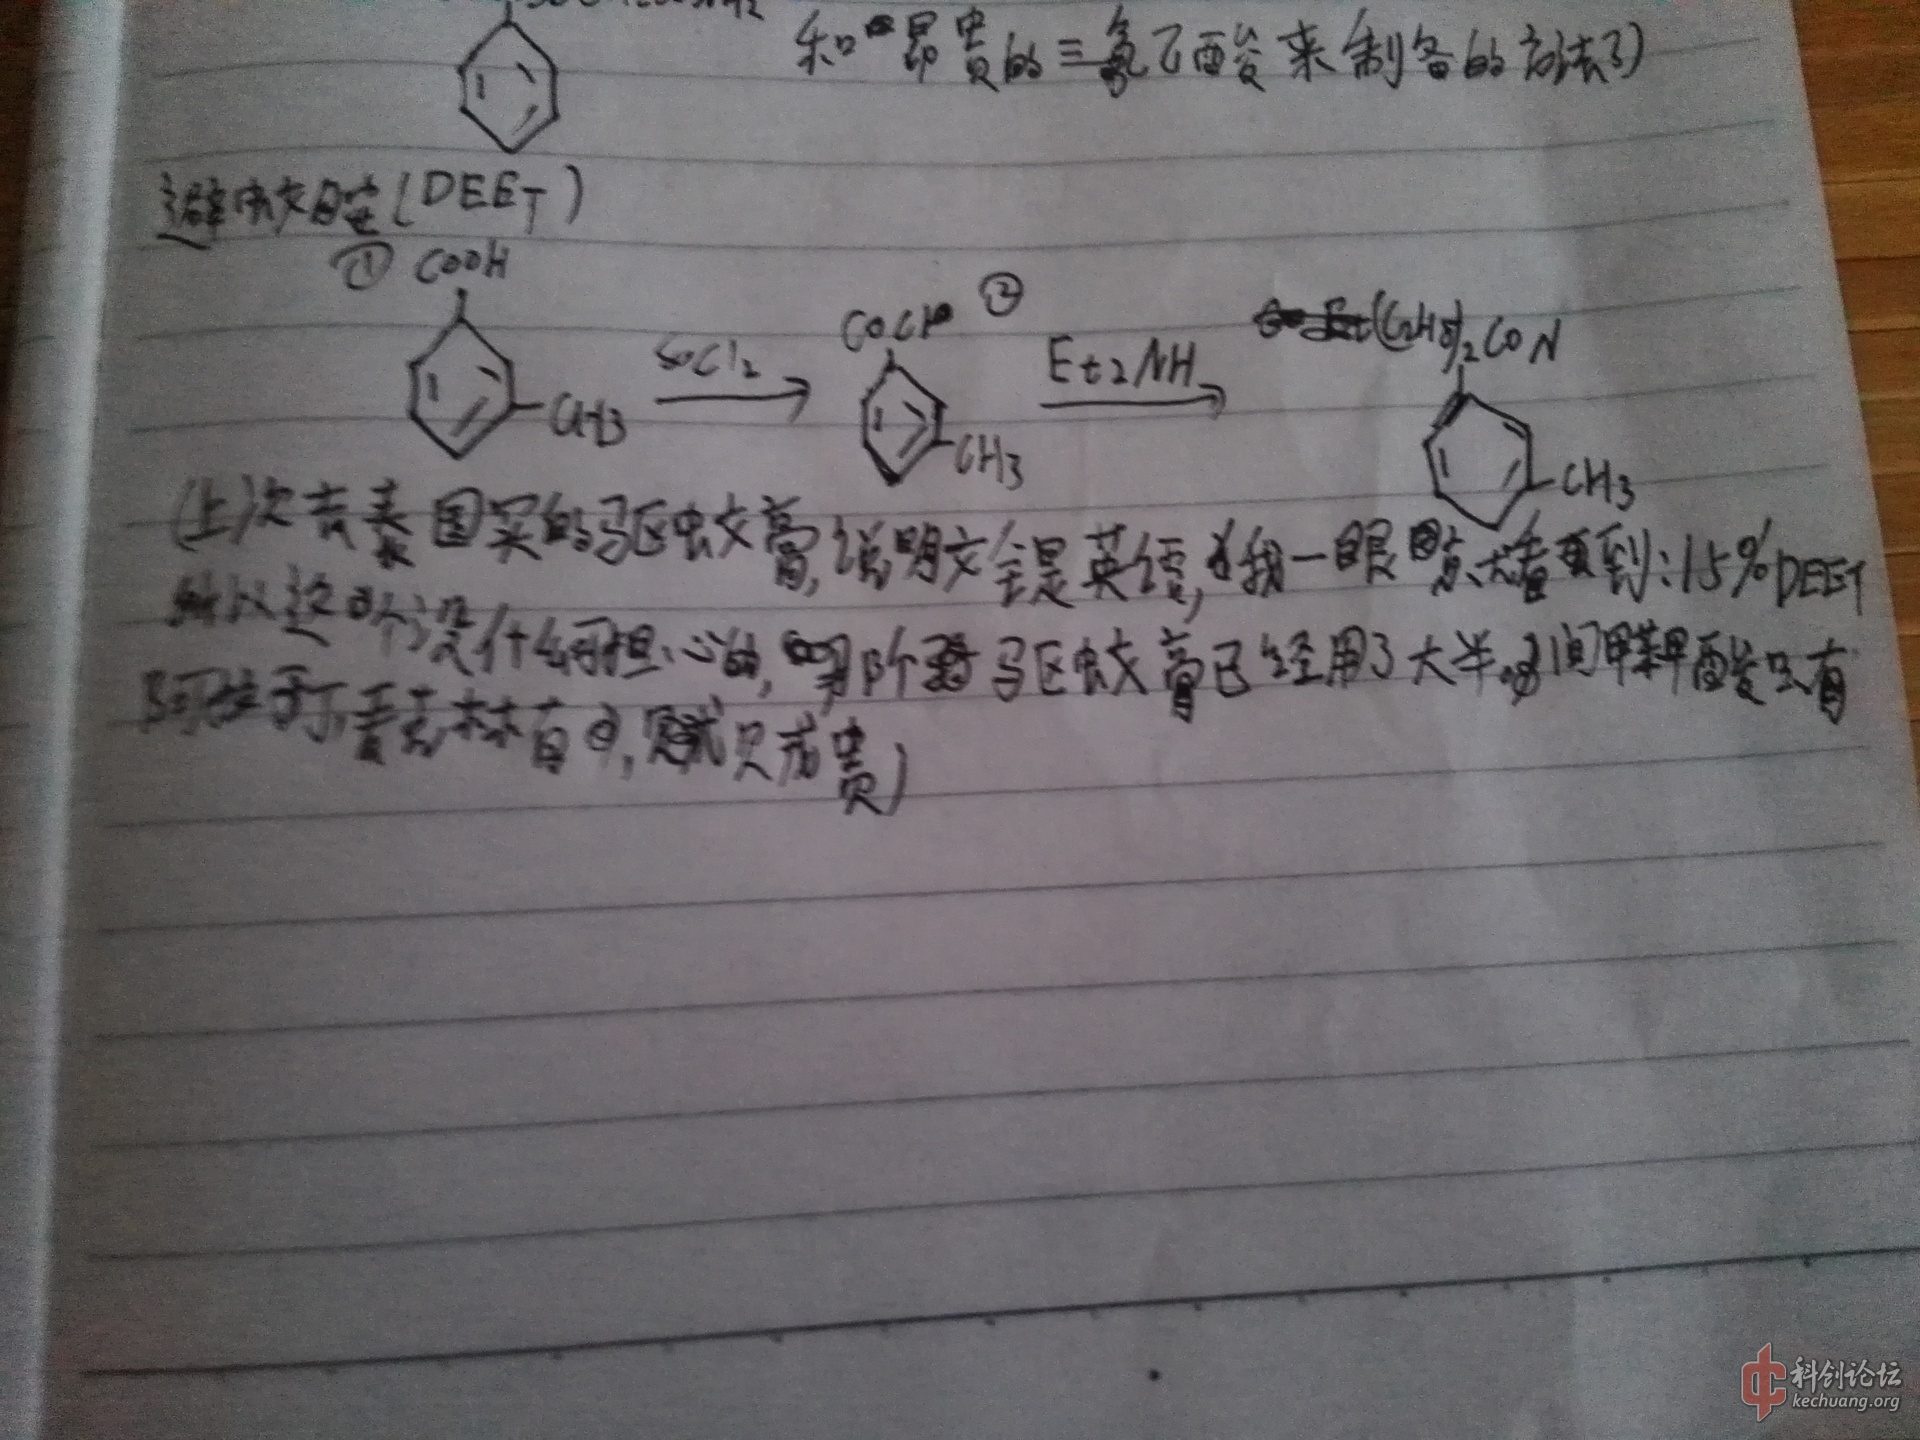 和昂贵的三氟乙酸来制备的方法了)
避蚊胺(DEET)
① COOH
COCl ②
SOCl2
Et2NH
(C2H5)2CON
CH3
CH3
CH3
(上次去美国买的驱蚊膏,说明文全是英语,我一眼就看到:15%DEET
所以这个没什么可担心的,驱蚊膏已经用了大半。间甲苯甲酸只有
阿拉丁,麦克林有卖,贼贵)
科创论坛
kechuang.org